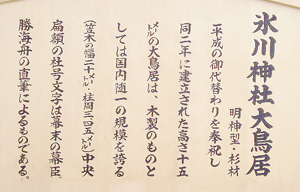 氷川神社大鳥居
明神型・杉材
平成の御代替わりを奉祝し
同二年に建立された高さ十五
メートルの大鳥居は、木製のものと
しては国内随一の規模を誇る
(笠木の幅二十メートル・柱周三四五メートル)中央
扁額の社号文字は幕末の幕臣、
勝海舟の直筆によるものである。